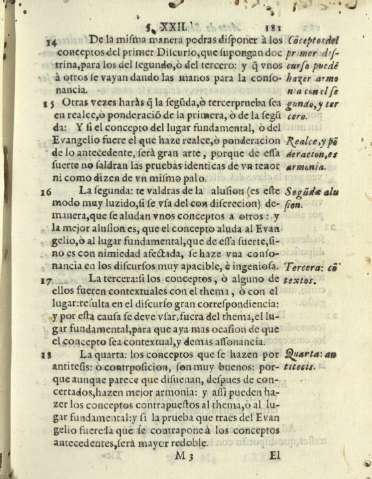 §. XXII. 181
14 De la misma manera podras disponer à los
conceptos del primer Discurso, que supongan doc
trina, para los del segundo, ò del tercero: y q̃ vnos
à otros se vayan dando las manos para la conso-
nancia.
Cōceptos del
primer dis-
curso puedē
hazer armo
nia con el se
gundo, y ter
cero.
15 Otras vezes haràs q̃ la segũda, ò tercer prueba sea
en realce, ò ponderació de la primera, ò de la segũ
da: Y si el concepto del lugar fundamental, ò del
Evangelio fuere el que haze realce, ò ponderacion
de lo antecedente, serà gran arte, porque de essa
suerte no saldran las pruebas identicas de vn tenor
ni como dizen de vn mismo palo.
Realce, y pō
deracion, es
armonia.
16 La segunda: te valdras de la alusion (es este
modo muy luzido, si se vsa del con discrecion) de-
manera, que se aludan vnos conceptos a otros: y
la mejor alusion es, que el concepto aluda al Evan
gelio, ò al lugar fundamental, que de essa suerte, si-
no es con nimiedad afectada, se haze vna conso-
nancia en los discursos muy apacible, è ingeniosa.
Segũda alu
sion.
17 La tercera: si los conceptos, ò alguno de
ellos fueren contextuales con el thema, ò con el
lugar: resulta en el discurso gran correspondiencia:
y por esta causa se deve vsar, fuera del thema, el lu-
gar fundamental, para que aya mas ocasion de que
el concepto sea contextual, y demas assonancia.
Tercera: cō
textos.
18 La quarta: los conceptos que se hazen por
antitesis: ò contrposicion, son muy buenos: por-
que aunque parece que disuenan, despues de con-
certados, hazen mejor armonia: y assi pueden ha-
zer los conceptos contrapuestos al thema, ò al lu-
gar fundamental: y si la prueba que traes del Evan
gelio fuere la que se contrapone à los conceptos
antecedentes, serà mayor redoble.
Quarta: an
titesis.
M 3 El